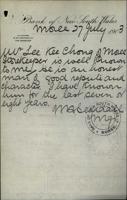 Bank of New South Wales
Moree 27 July 1903
Mr Lee Kee Chong of Moree
Storekeeper is well known
to me, he is an honest
man of good repute and
character. I have known
him for the last seven or
eight years.